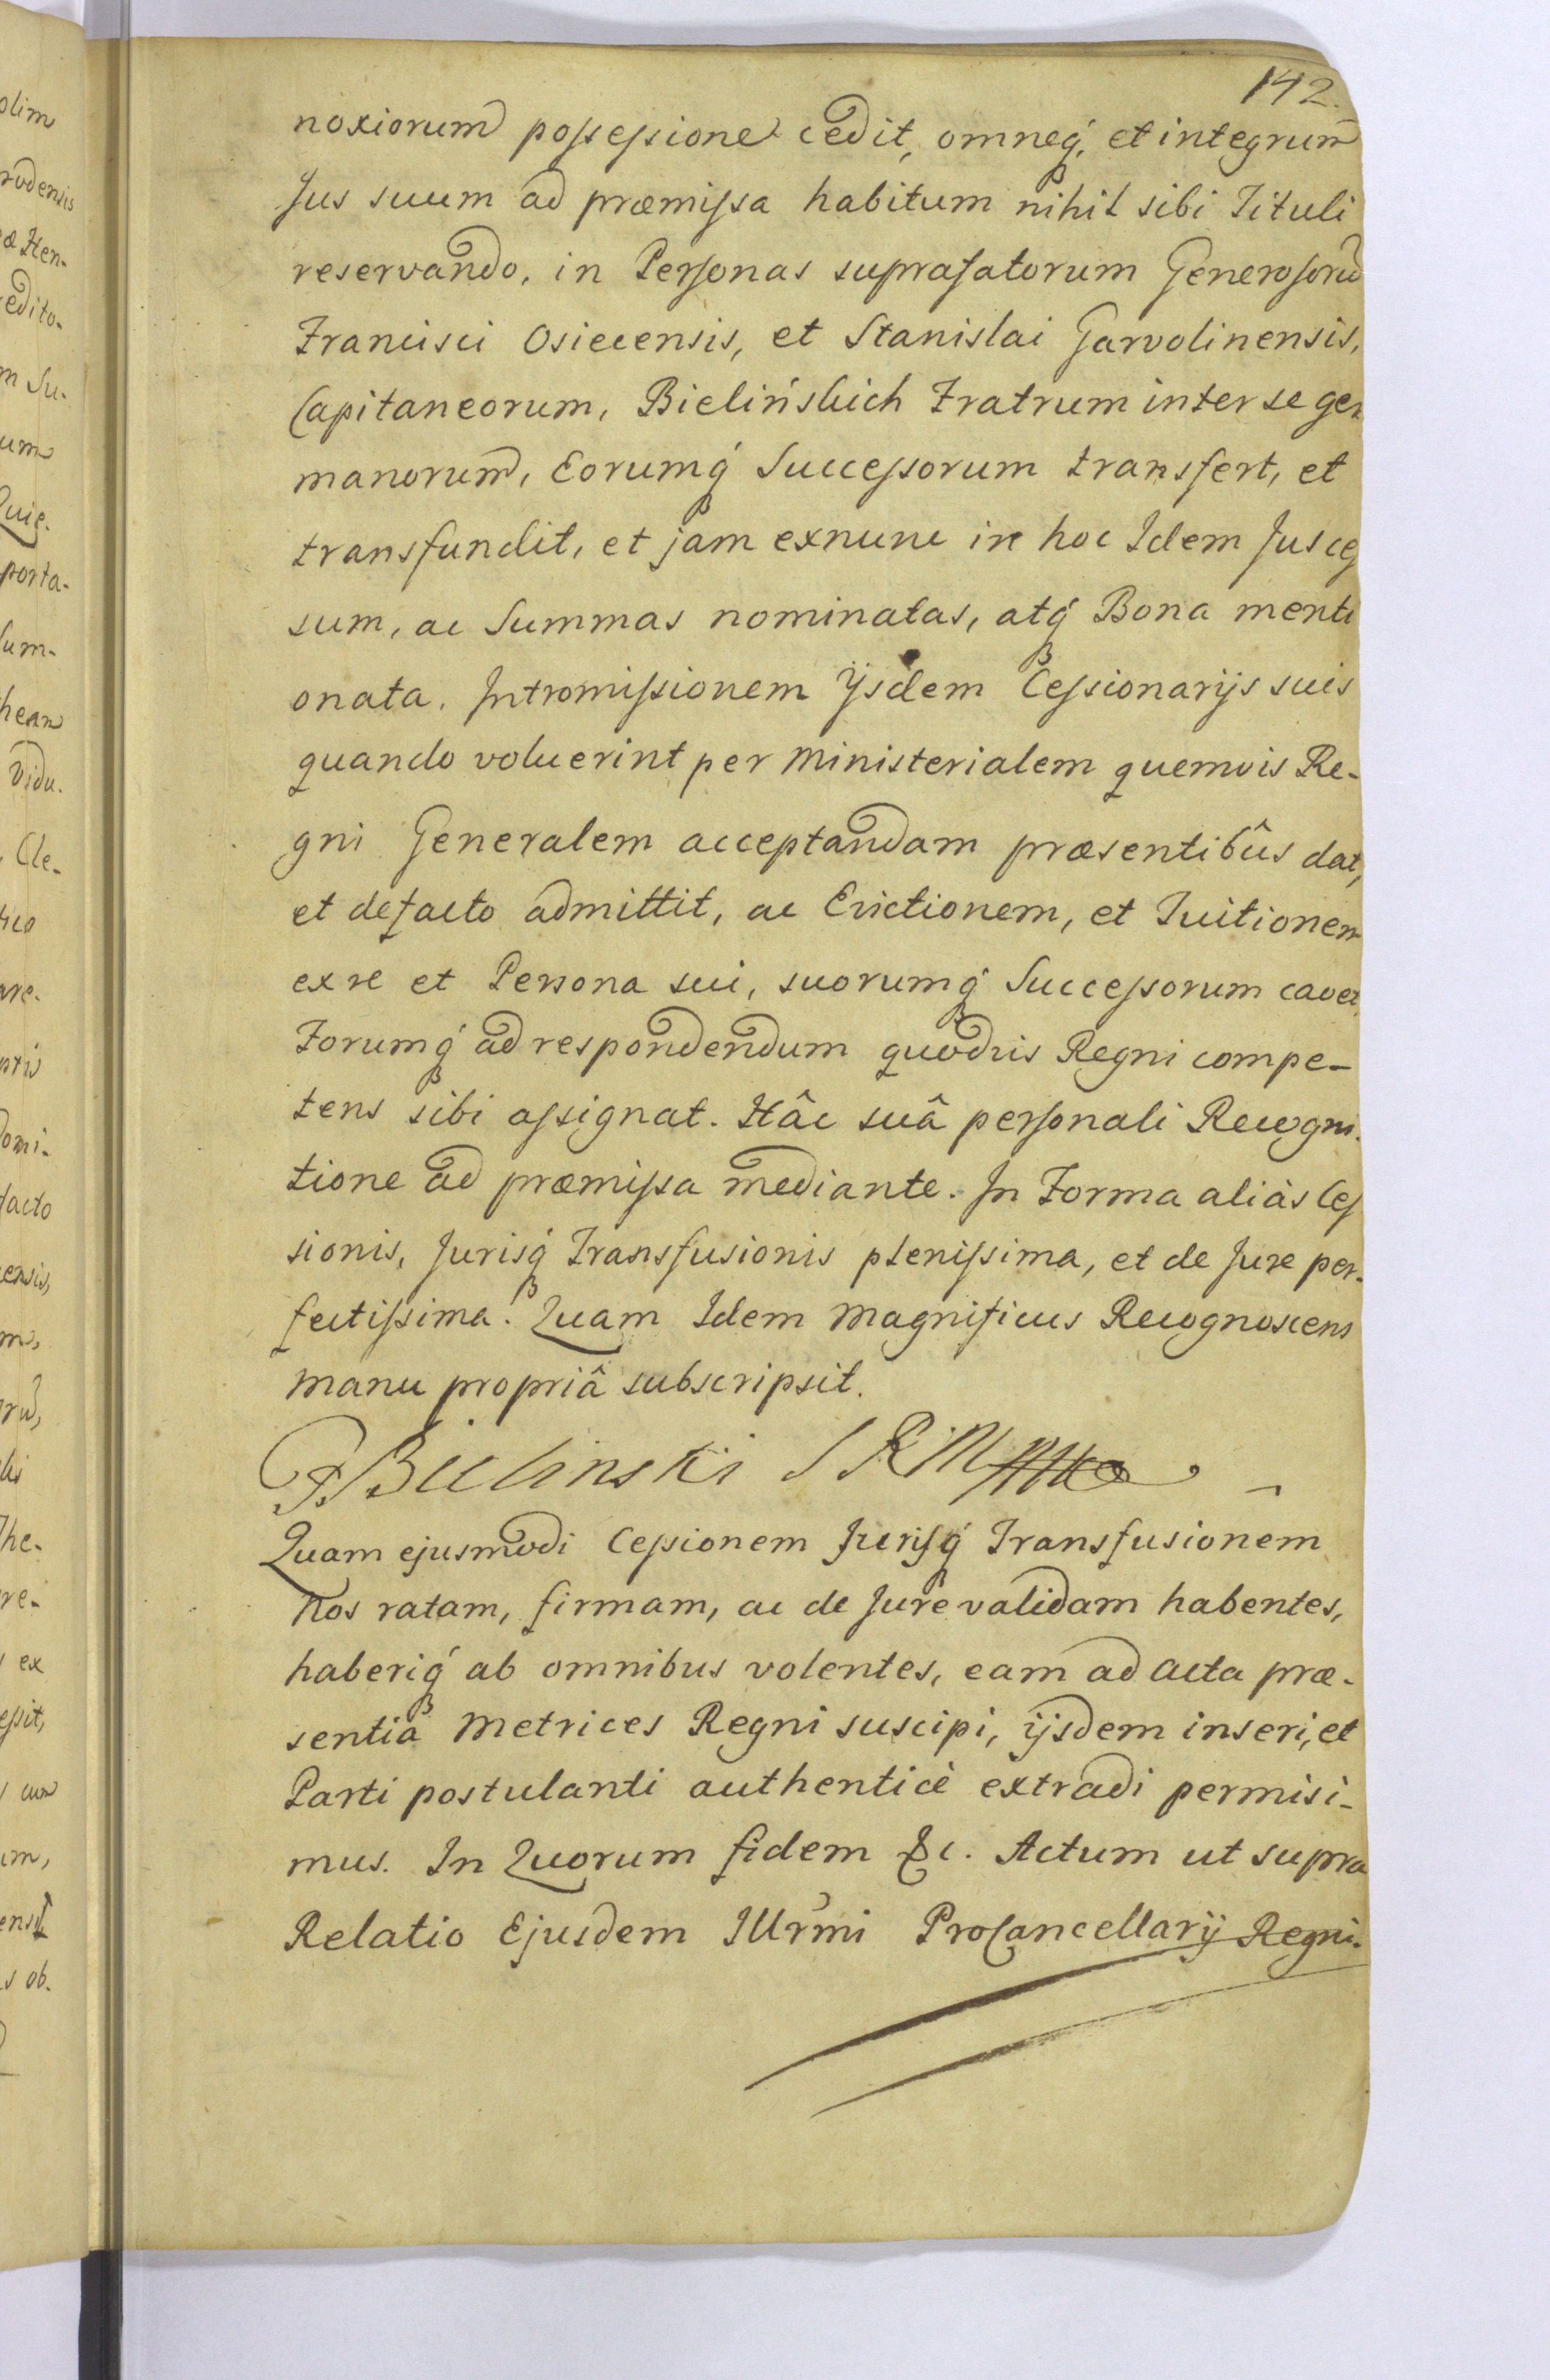 142.
noxiorum possessione cedit, omneq́, et integrum
Jus suum ad præmissa habitum nihil sibi Tituli
reservando, in Personas suprafatorum Generosorũ
Francisci Osiecensis, et Stanislai Garvolinensis,
Capitaneorum, Bielińskich Fratrum inter se ger
manorum, Eorumq́ Successorum transfert, et
transfundit, et jam exnunc in hoc Idem Jus ces
sum, ac Summas nominatas, atq́ Bona menti
onata, Intromissionem ijsdem Cessionarijs suis
quando voluerint per Ministerialem quemvis Re-
gni Generalem acceptandam præsentibûs dat,
et defacto admittit, ac Evictionem, et Tuitionem
ex re et Persona sui, suorumq́ Successorum cavet,
Forumq́ ad respondendum quodvis Regni compe-
tens sibi assignat. Hâc suâ personali Recogni-
tione ad præmissa mediante. In Forma aliàs Ces
sionis, Jurisq́ Transfusionis plenissima, et de Jure per-
fectissima. Quam Idem Magnificus Recognoscens
manu propriâ subscripsit.
Bielinski
Quam ejusmodi Cessionem Jurisq́ Transfusionem
Nos ratam, firmam, ac de Jure validam habentes,
haberiq́ ab omnibus volentes, eam ad acta præ-
sentia Metrices Regni suscipi, ijsdem inseri, et
Parti postulanti authenticè extradi permisi-
mus. In Quorum fidem &c. Actum ut supra
Relatio Ejusdem Illrmi ProCancellarij Regni.